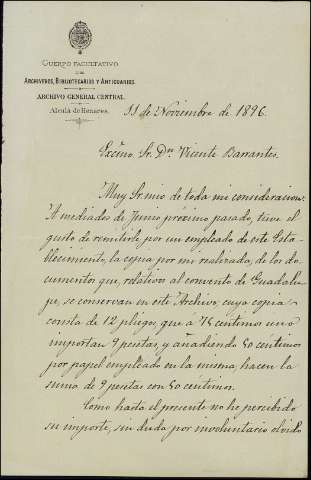 CUERPO FACULTATIVO
DE
ARCHIVEROS, BIBLIOTECARIOS Y ANTICUARIOS.
ARCHIVO GENERAL CENTRAL.
Alcalá de Henares.
11 de Noviembre de 1896.
Excmo. Sr. Dn. Vicente Barrantes.
Muy Sr. mio de toda mi consideracion:
A mediados de Junio próximo pasado, tuve el
gusto de remitirle por un empleado de este Esta-
blecimiento, la copia por mi realizada, de los do-
cumentos que, relativos al convento de Guadalu-
pe, se conservan en este Archivo, cuya copia
consta de 12 pliegos, que a 75 centimos uno
importan 9 pesetas, y añadiendo 50 céntimos
por papel empleado en la misma, hacen la
suma de 9 pesetas con 50 centimos.
Como hasta el presente no he percibido
su importe, sin duda por involuntario olvido